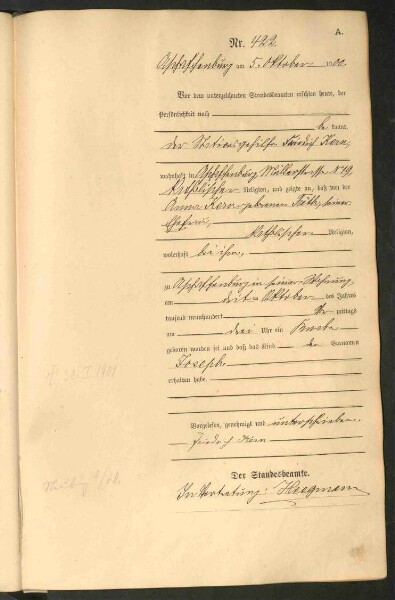 A.
Nr. 422.
Aschaffenburg am 5. Oktober 1900
Vor dem unterzeichneten Standesbeamten erschien heute, der
Persönlichkeit nach
be kannt,
der Stationsgehilfe Friedrich Kern,
wohnhaft in Aschaffenburg, Müllerstraße № 19,
katholischer Religion, und zeigte an, daß von der
Anna Kern geborenen, seiner
Ehefrau,
katholischer Religion,
wohnhaft bei ihm,
zu Aschaffenburg in seiner Wohnung
am dritten Oktober des Jahres
tausend neunhundert Vor mittags
um drei Uhr ein Knabe
geboren worden sei und daß das Kind den Vornamen
Joseph
erhalten habe.
Vorgelesen, genehmigt und unterschrieben.
Friedrich Kern
Der Standesbeamte.
In Vertretung: